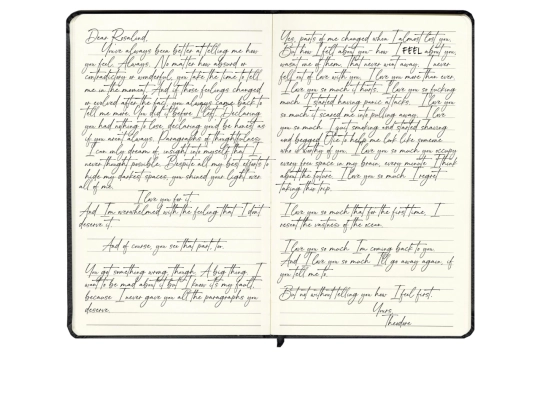 Dear Rosalind,
You've always been better at telling me how
you feel. Always. No matter how absurd or
contradictory or wonderful, you take the time to tell
me in the moment. And if those feelings changed
or evolved after the fact, you always came back to
tell me more. You did it before I left. Declaring
you had nothing to lose, declaring you'd be honest as
if you aren't always. Paragraphs of thoughtfulness
I can only dream of, insight into myself that I
never thought possible. Despite all my best efforts to
hide my darkest spaces, you shined your light over
all of me.
I love you for it.
And I'm overwhelmed with the feeling that I don't
deserve it.
And of course, you see that part too.
You got something wrong though. A big thing. I
want to be mad about it but I know it's my fault,
because I never gave you all the paragraphs you
deserve.
Yes, parts of me changed when I almost lost you.
But how I felt about you - how I FEEL about you,
wasn't one of them. That never went away. I never
fell out of love with you. I love you more than ever.
I love you so much it hurts. I love you so fucking
much I started having panic attacks. I love you
so much it scared me into pulling away. I love
you so much I quit smoking and started shaving
and begged to help me look like someone
who's worthy of you. I love you so much you occupy
every free space in my brain, every minute I think
about the future. I love you so much I regret
taking this trip.
I love you so much that for the first time, I
resent the vastness of the ocean.
I love you so much I'm coming back to you.
And I love you so much I'll go away again, if
you tell me to.
But not without telling you how I feel first.
Yours,
Theodore